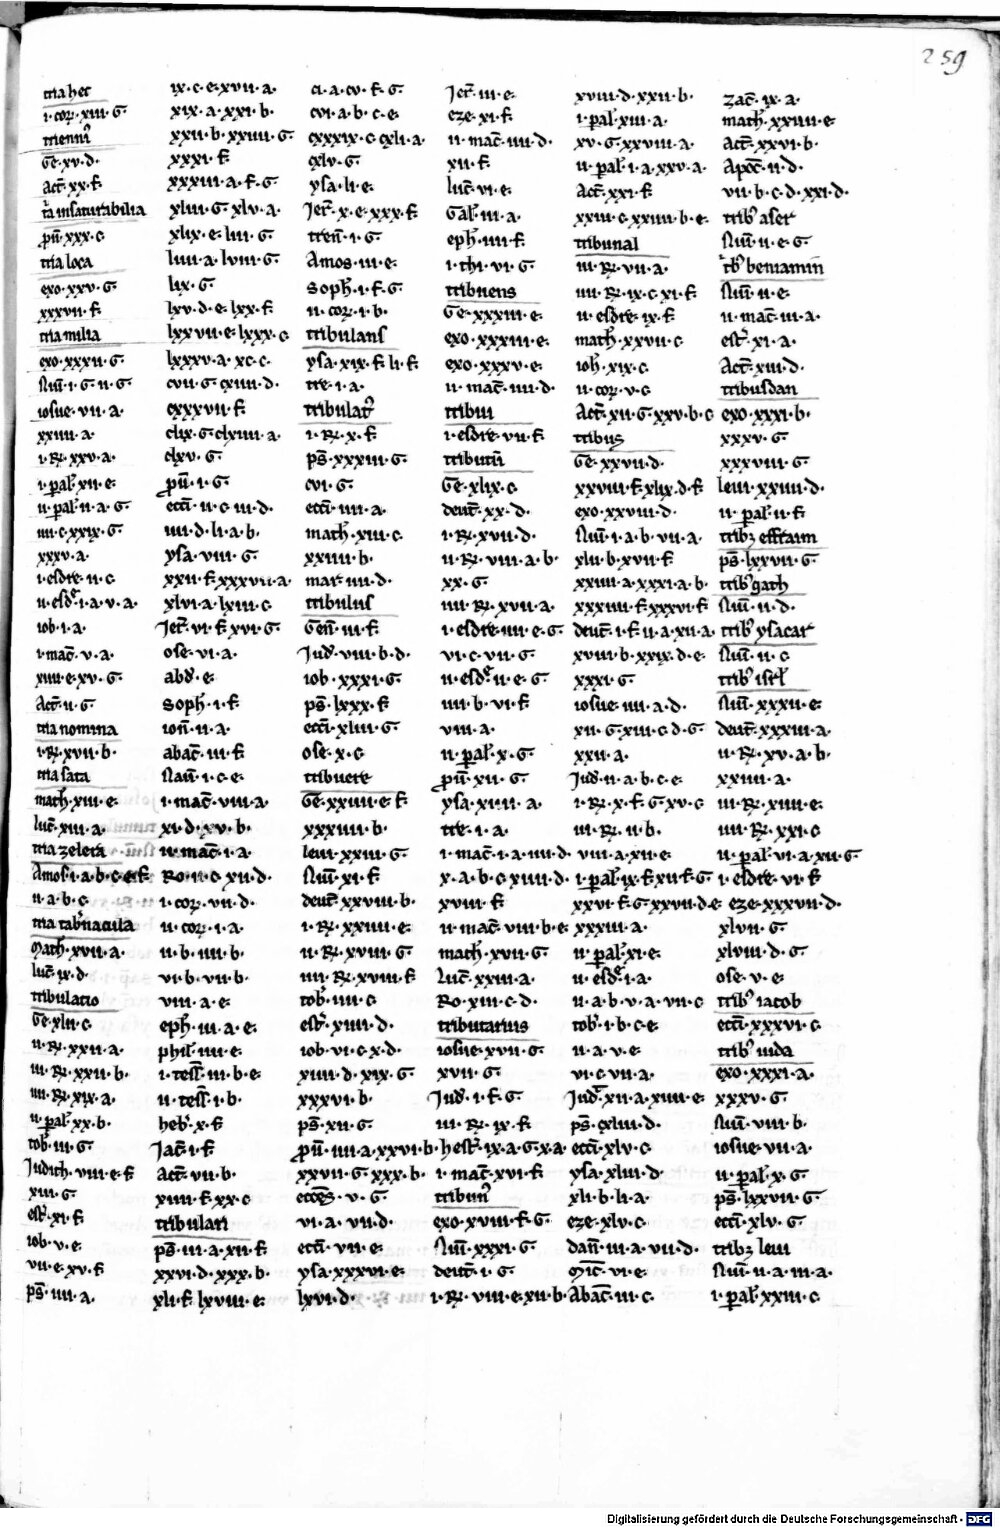 259
tria hec
i·cor·xiii·G
trienni
Ge·xv·d·
Act·xx·f
tria insaturabilia
pru·xxx·c
tria loca
exo·xxv·G
xxxvii·f
tria milia
exo·xxxii·G
Nuᷝ·i·G·ii·G
iosue·vii·a·
xxiiii·a
i·R·xxv·a·
i·pal·xii·e
ii·pal·ii·a·G
iiii·c·xxix·G
xxxv·a·
i·esdre·ii·c
ii·esd·i·a·v·a·
iob·i·a·
i·mac·v·a·
xiii·e·xv·G
Act·ii·G
tria nomina
i·R·xvii·b·
tria sata
math·xiii·e·
luc·xiii·a·
tria zelera
Amos·i·a·b·c·e·f
ii·a·b·c
tria tabernacula
Math·xvii·a·
luc·ix·d·
tribulatio
Ge·xlii·c
ii·R·xxii·a·
iii·R·xxii·b·
iiii·R·xix·a·
ii·pal·xx·b·
tob·iii·G
Judith·viii·e·f
xiii·G
est·xi·f
iob·v·e·
vii·e·xv·f
ps·iiii·a·
ix·c·e·xvii·a·
xix·a·xxi·b·
xxii·b·xxiiii·G
xxxi·f
xxxiii·a·f·G
xliii·G·xlv·a·
xlix·e·liii·G
liiii·a·lviii·G
lix·G
lxv·d·e·lxx·f
lxxvii·e·lxxx·c
lxxxv·a·xc·c·
cvii·G·cxiiii·d·
cxxxvii·f
clix·G·clxiiii·a
clxv·G
pru·i·G
eccᷝi·ii·c·iii·d·
iiii·d·li·a·b·
ysa·viii·G
xxii·f·xxxvii·a·
xlvi·a·lxiii·c
Jer·vi·f·xvi·G
ose·vi·a·
abd·e
soph·i·f
ion·ii·a·
abac·iii·f
Naum·i·c·e·
i·mac·viii·a
xi·d·xv·b·
ii·mac·i·a
Ro·ii·c·xii·d·
i·cor·vii·d·
ii·cor·i·a·
ii·b·iiii·b·
vi·b·vii·b·
viii·a·e
eph·iii·a·e·
phil·iiii·e
i·tess·iii·b·e
ii·tess·i·b·
heb·x·f
Jac·i·f
Act·vii·b·
xiiii·f·xx·c
tribulari
ps·iii·a·xii·f
xxvi·d·xxx·b·
xli·f·lxviii·e
ci·a·cv·f·G
cvi·a·b·c·e·
cxxxix·c·cxli·a·
cxlv·G
ysa·li·e·
Jer·x·e·xxx·f
tren·i·G
Amos·iii·e
soph·i·f·G
ii·cor·i·b·
tribulans
ysa·xix·f·li·f
tre·i·a·
tribulat
i·R·x·f
ps·xxxiii·G
cvi·G
eccᷝi·iiii·a
math·xiii·c
xxiiii·b·
mar·iiii·d·
tribulus
Gen·iii·f
Jud·viii·b·d·
iob·xxxi·G
ps·lxxx·f
eccᷝi·xliii·G
ose·x·c
tribuere
Ge·xxiiii·e·f
xxxiiii·b·
leui·xxiii·G
Nuᷝ·xi·f
deut·xxviii·b·
i·R·xxiiii·e
ii·R·xxiiii·G
iiii·R·xviii·f
tob·iiii·c
est·xiiii·d·
iob·vi·c·x·d·
xiiii·d·xix·G
xxxvi·b·
ps·xii·G
pru·iiii·a·xxvi·b·
xxvii·G·xxx·b·
ecces·v·G
vi·a·vii·d·
eccᷝi·vii·e·
ysa·xxxvi·e·
lxvi·d·
Jer·iii·e·
eze·xi·f
ii·mac·iiii·d·
xii·f
luc·vi·e
Gal·iii·a·
eph·iiii·f
i·thi·vi·G
tribuens
Ge·xxxiii·e·
exo·xxxiii·e·
exo·xxxv·e·
ii·mac·iiii·d·
tribui
i·esdre·vii·f
tributu
Ge·xlix·c
deut·xx·d·
i·R·xvii·d·
ii·R·viii·a·b·
xx·G
iiii·R·xvii·a·
i·esdre·iiii·e·G
vi·c·vii·G
ii·esd·ii·e·G
iiii·b·vi·f
viii·a·
ii·pal·x·G
pru·xii·G
ysa·xiiii·a·
tre·i·a·
i·mac·i·a·iiii·d·
x·a·b·c·xiiii·d·
xviii·f
ii·mac·viii·b·e
math·xvii·G
Luc·xxiii·a·
Ro·xiii·c·d·
tributarius
iosue·xvii·G
xvii·G
Jud·i·f·G
iii·R·ix·f
hest·ix·a·G·x·a
i·mac·xvi·f
tribun
exo·xviii·f·G
Nuᷝ·xxxi·G
deut·i·G
i·R·viii·e·xii·b·
xviii·d·xxii·b·
i·pal·xiii·a·
xv·G·xxviii·a·
ii·pal·i·a·xxv·a·
Act·xxi·f
xxiii·c·xxiiii·b·e·
tribunal
iii·R·vii·a·
iiii·R·ix·c·xi·f
ii·esdre·ix·f
math·xxvii·c
ioh·xix·c
ii·cor·v·c
Act·xii·G·xxv·b·c
tribus
Ge·xxvii·d·
xxviii·f·xlix·d·f
exo·xxviii·d·
Nuᷝ·i·a·b·vii·a·
xiii·b·xvii·f
xxiiii·a·xxxi·a·b
xxxiiii·f·xxxvi·f
deut·i·f·ii·a·xii·a·
xviii·b·xxix·d·e
xxxi·G
iosue·iiii·a·d·
xii·G·xiii·c·d·G
xxii·a·
Jud·ii·a·b·c·e·
i·R·x·f·G·xv·c
iii·R·ii·b·
viii·a·xii·e·
i·pal·ix·f·xii·f·G
xxvi·f·G·xxvii·d·e
xxxiii·a·
ii·pal·xi·e·
ii·esd·i·a·
ii·a·b·v·a·vii·c
tob·i·b·c·e·
ii·a·v·e·
vi·c·vii·a·
Jud·xii·a·xiiii·e
ps·cxliii·d·
eccᷝi·xlv·c
ysa·xliii·d·
xli·b·li·a·
eze·xlv·c
dan·iii·a·vii·d·
Mic·vi·e·
Abac·iii·c·
zac·ix·a·
math·xxiiii·e
Act·xxvi·b·
Apoc·ii·d·
vii·b·c·d·xxi·d·
trib aser
Nuᷝ·ii·e·G
trib beniamin
Nuᷝ·ii·e·
ii·mac·iii·a·
est·xi·a·
Act·xiii·d·
tribusdan
exo·xxxi·b·
xxxv·G
xxxviii·G
leui·xxiiii·d·
ii·pal·ii·f
trib effraim
ps·lxxvii·G
trib gath
Nuᷝ·ii·d·
trib ysacar
Nuᷝ·ii·c
trib isrl
Nuᷝ·xxxii·e
deut·xxxiii·a·
ii·R·xv·a·b·
xxiiii·a·
iii·R·xiiii·e·
iiii·R·xxi·c
ii·pal·vi·a·xii·G
i·esdre·vi·f
eze·xxxvii·d·
xlvii·G
xlviii·d·G
ose·v·e·
trib iacob
eccᷝi·xxxvi·c
trib iuda
exo·xxxi·a·
xxxv·G
Nuᷝ·viii·b·
iosue·vii·a·
ii·pal·x·G
ps·lxxvii·G
eccᷝi·xlv·G
trib leui
Nuᷝ·ii·a·iii·a·
i·pal·xxiii·c
Digitalisierung gefördert durch die Deutsche Forschungsgemeinschaft · DFG